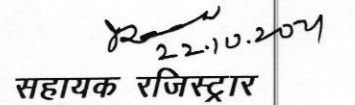 22.10.2021
सहायक रजिस्ट्रार